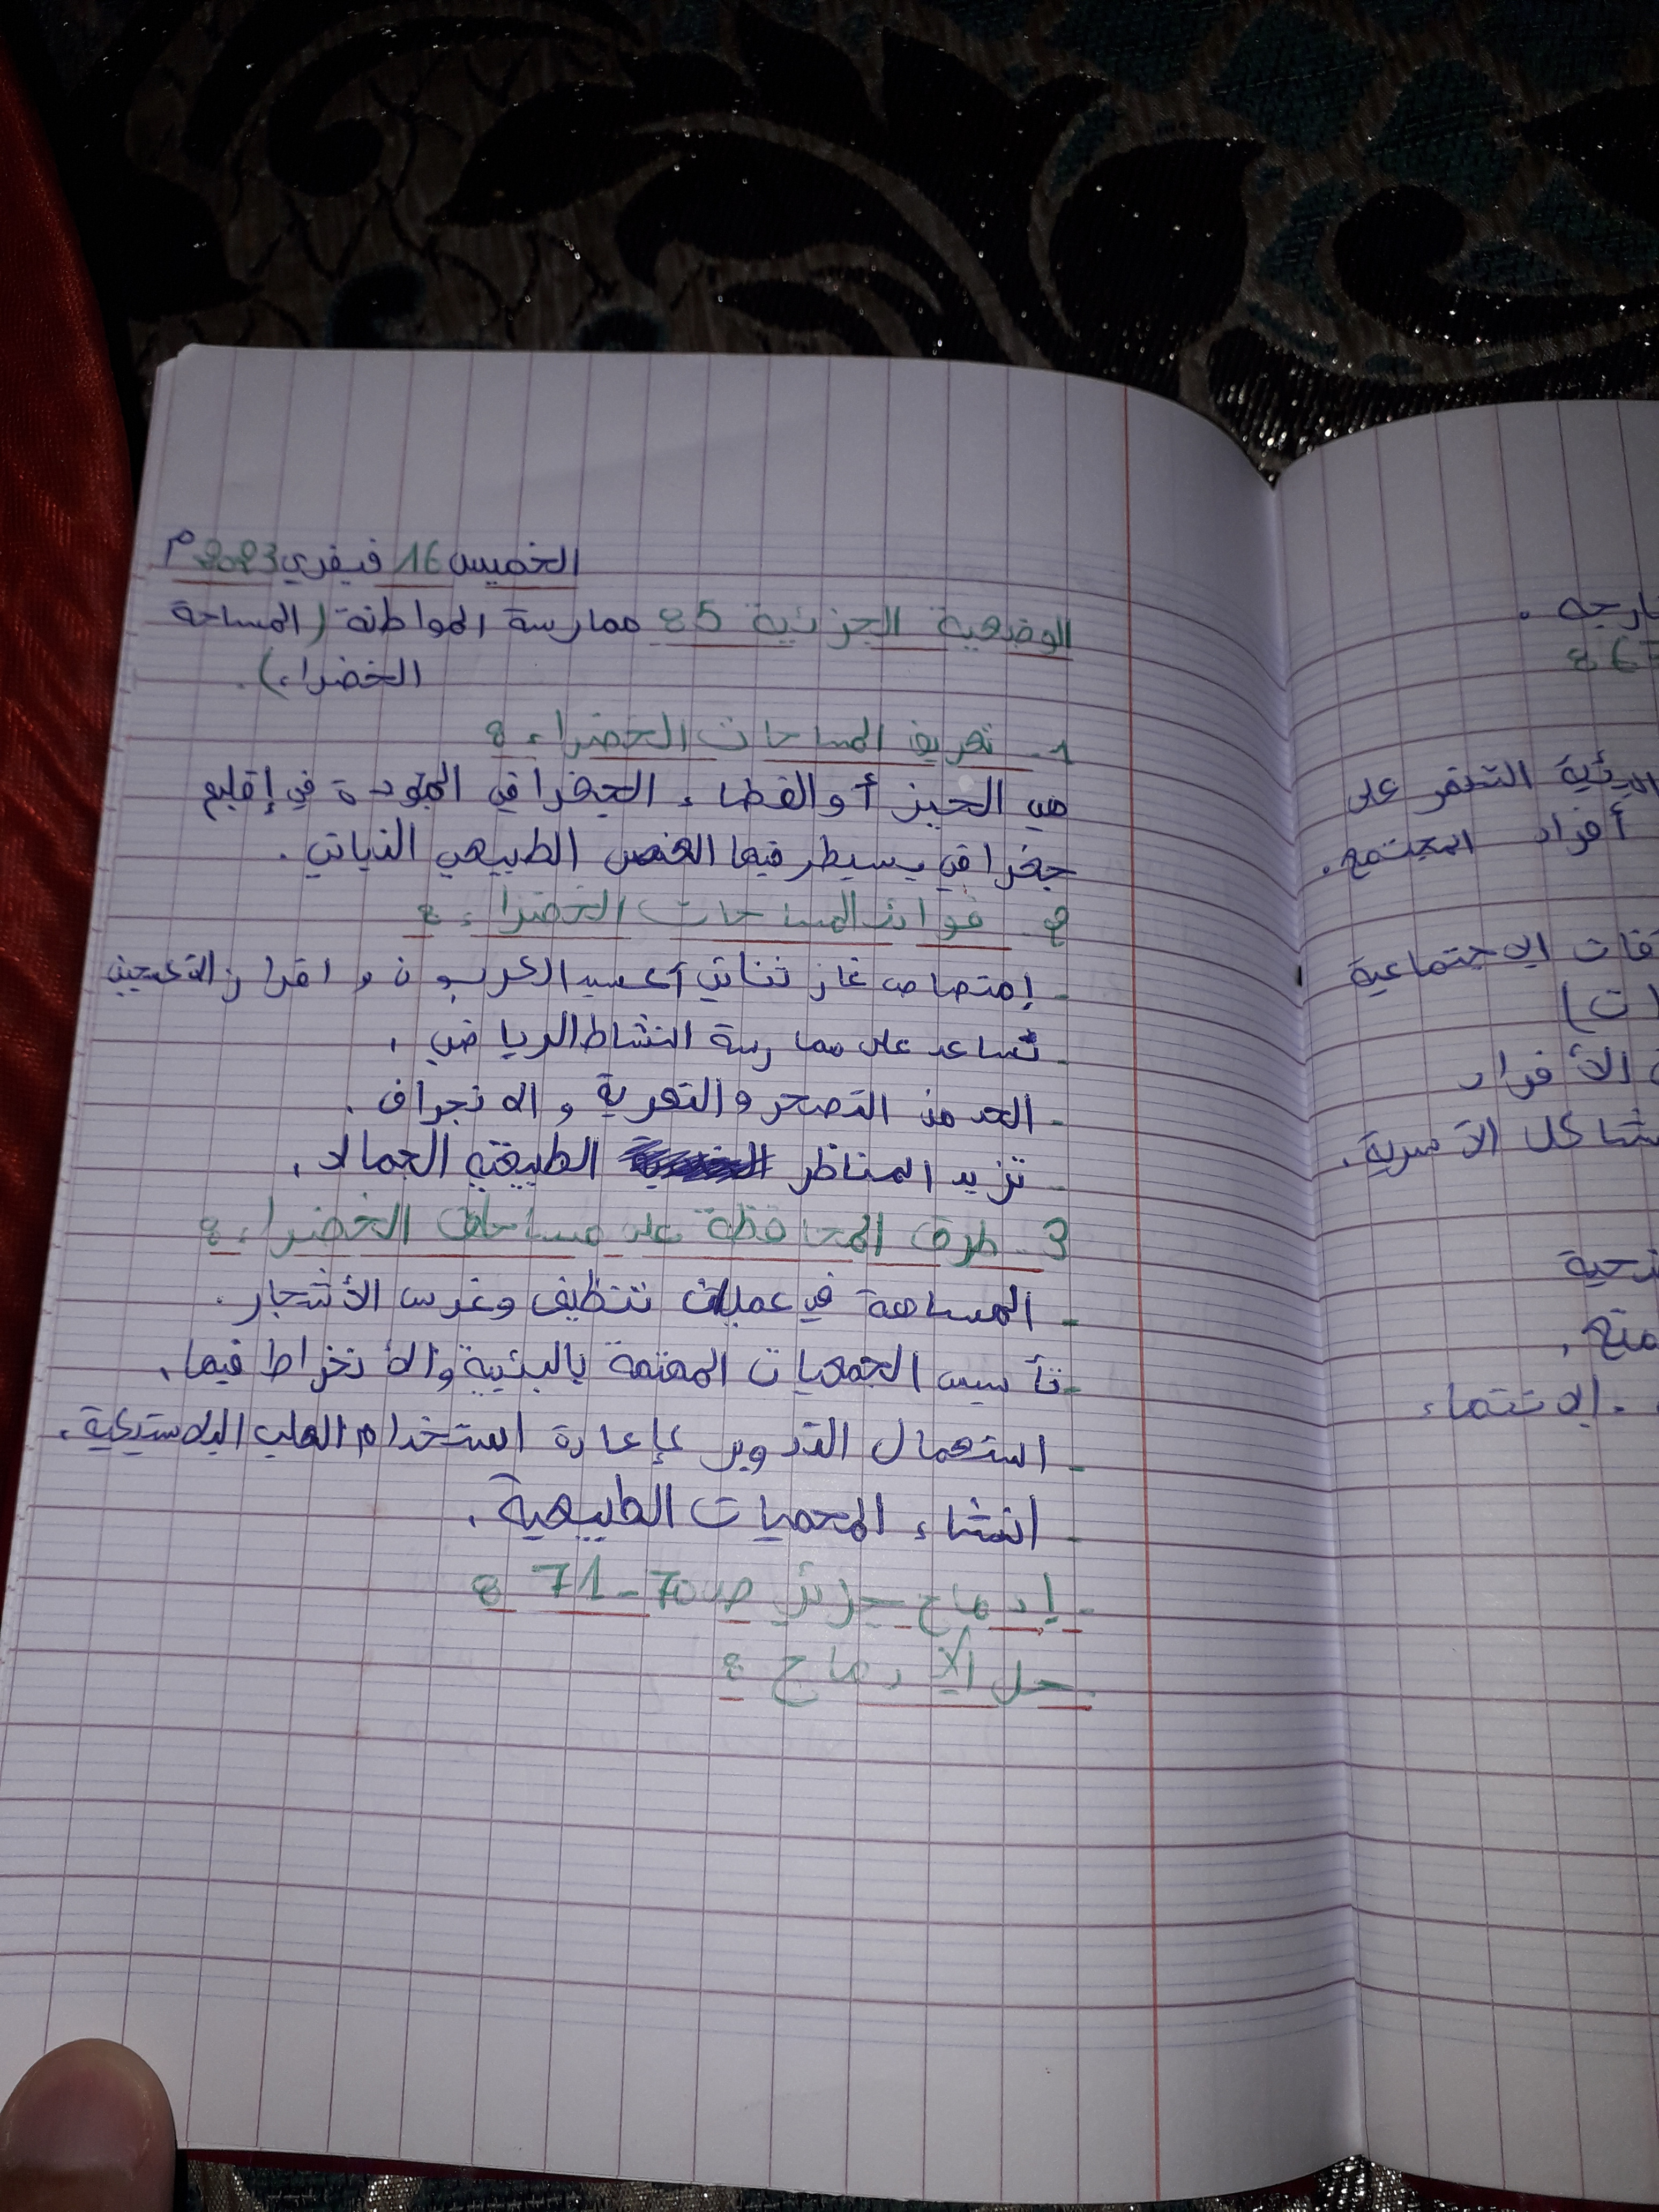 الخميس 16 فيفري 2023 م
الوضعية الجزئية 5: ممارسة المواطنة (المساحة
الخضراء).
1- تعريف المساحات الخضراء:
هي الحيز أو الفضاء الجغرافي الموجودة في إقليم
جغرافي يسيطر فيها العنصر الطبيعي النباتي.
2- فوائد المساحات الخضراء:
- إمتصاص غاز ثنائي أكسيد الكربون و افراز الاكسجين
- تساعد على ممارسة النشاط الرياضي.
- الحد من التصحر والتعرية و الانجراف.
- تزيد المناظر الطبيعية الجمالا.
3- طرق المحافظة على مساحات الخضراء:
- المساهمة في عمليات تنظيف وغرس الأشجار.
- تأسيس الجمعيات المهتمة بالبئيية والانخراط فيها.
- استعمال التدوير بإعادة استخدام العلب البلاستيكية.
- انشاء المحميات الطبيعية.
- إدماج جزئي ص 70-71:
حل الإدماج:
ارجه.
6:
التعفر على
أفراد المجتمع.
قات الاجتماعية
ات)
الأفراد
شاكل الأسرية.
. الانتماء